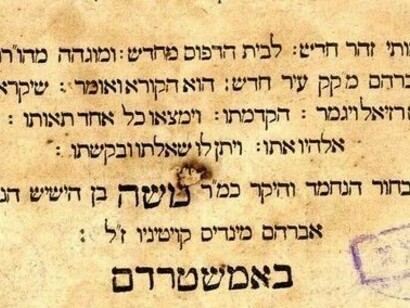 ותי זהר חדש : לבית הדפוס מחדש : ומוגהה מהור
ברהם מקק עיר חדש : הוא הקורא ואומר : שיקרא
רזיאל ויגמר : הקדמתו : וימצאו כל אחד תאותו :
אלהיו אתו : ויתן לו שאלתו ובקשתו :
בחור הנחמד והיקר כמ״ר משה בן הישיש הנ
אברהם מינדיס קויטיניו ז״ל :
באמשטרדם